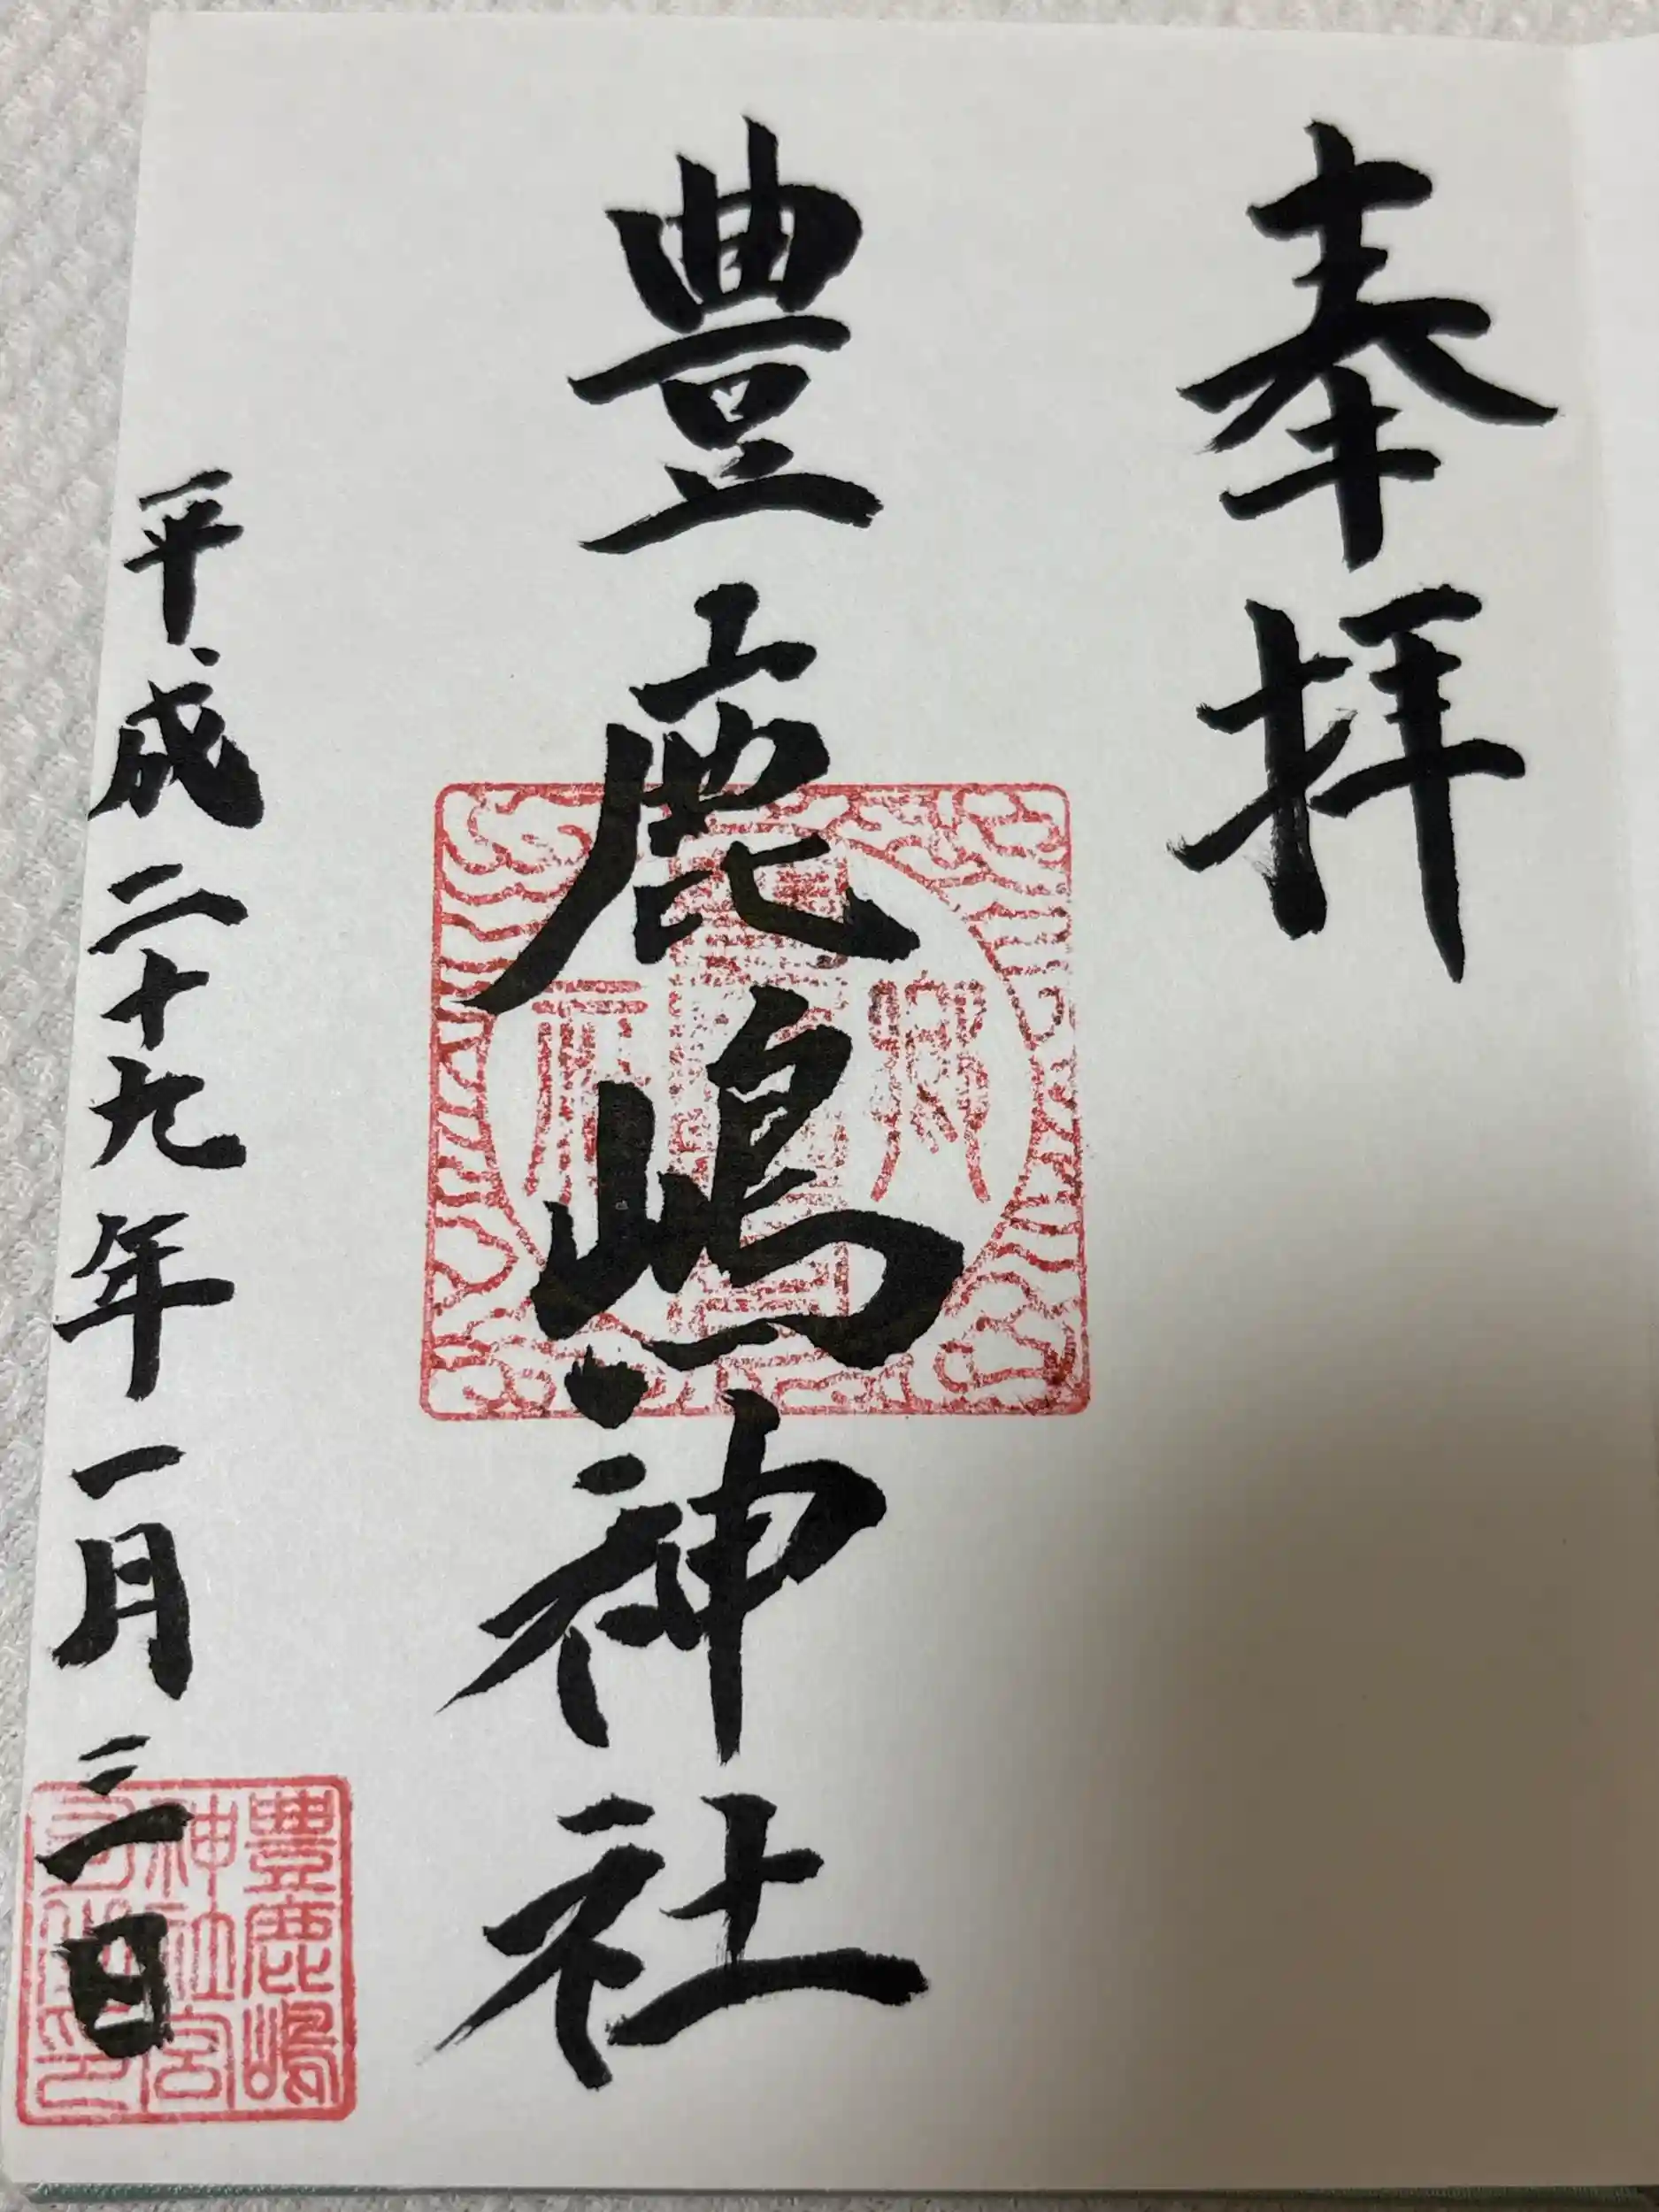 奉拝
豊鹿嶋神社
平成二十九年一月三日
豊鹿嶋
神社宮
司之印